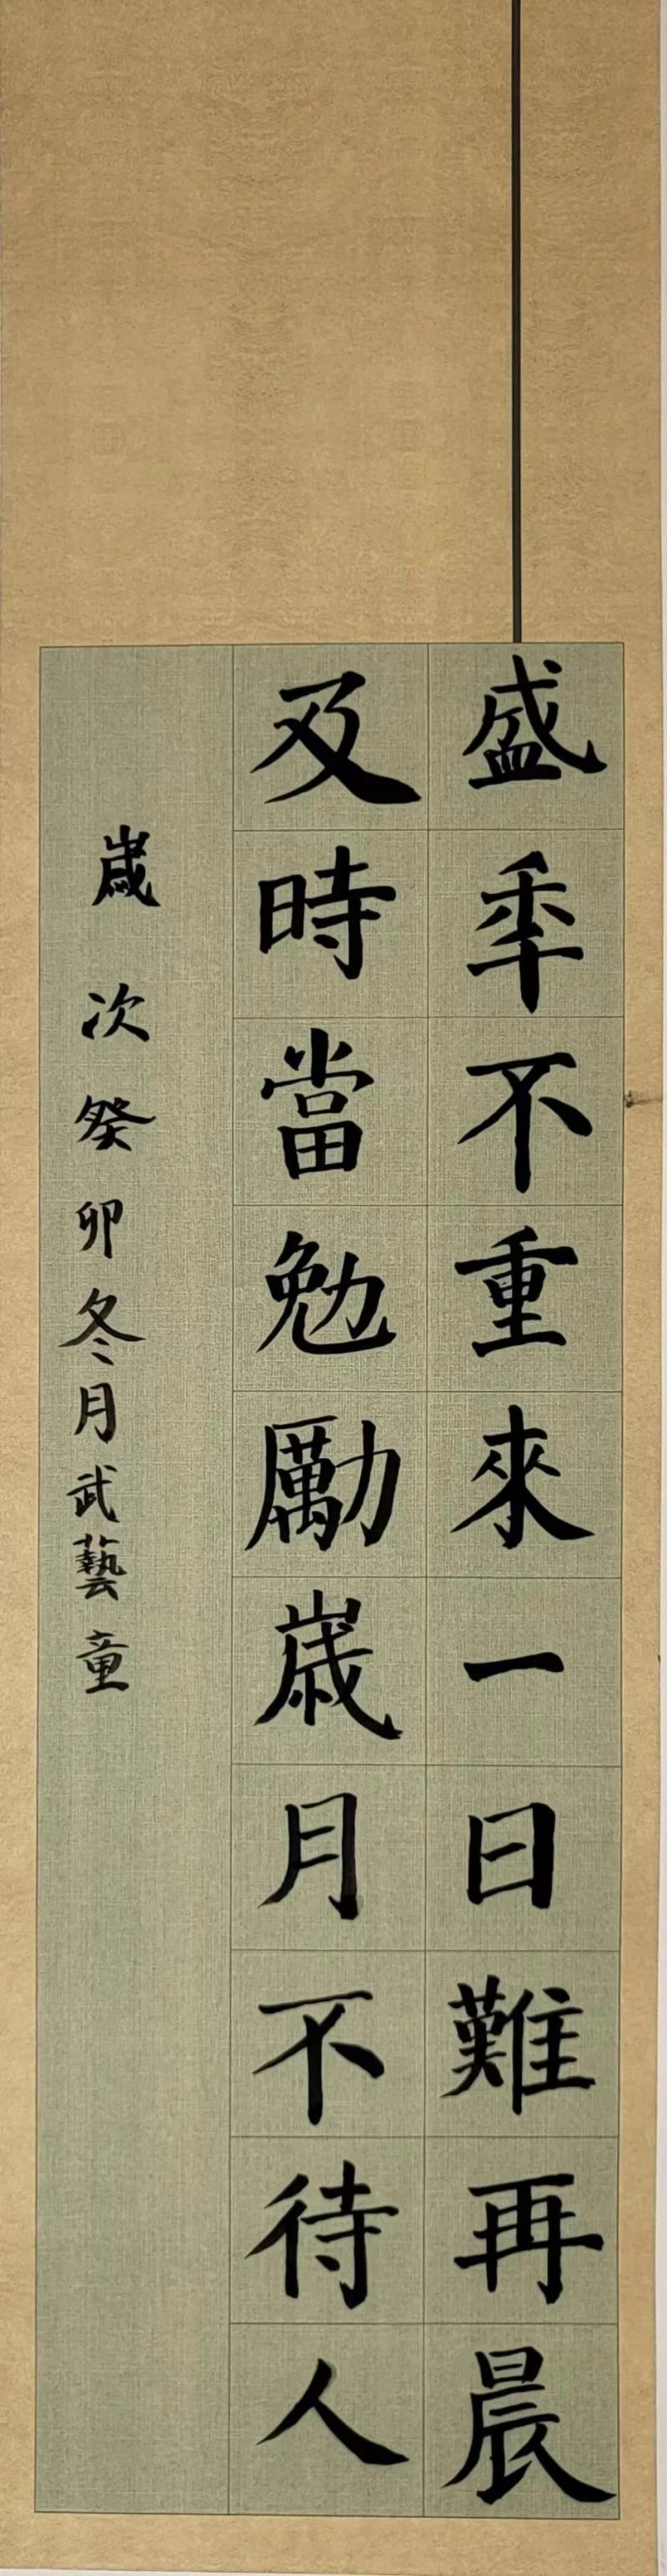 盛秊不重來一日難再晨
及時當勉勵歲月不待人
歲次癸卯冬月武藝童